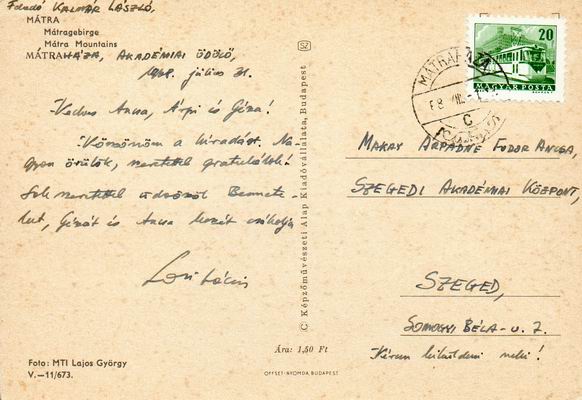 Feladó KALMÁR LÁSZLÓ,
MÁTRA
Mátragebirge
Mátra Mountains
MÁTRAHÁZA, AKADÉMIAI ÜDÜLŐ,
július 31.
Kedves Anna, Árpi és Géza!
Köszönöm a híradást. Na-
gyon örülök, szeretettel gratulálok!
Sok szeretettel üdvözöl Benne-
teket, Gézát és Anna kezét csókolja
Laci bácsi
Foto: MTI Lajos György
V.—11/673.
SZ
C Képzőművészeti Alap Kiadóvállalata, Budapest
Ára: 1,50 Ft
OFFSET-NYOMDA, BUDAPEST
20
MAGYAR POSTA
MÁTRAHÁZA
C
MAKAY ÁRPÁDNÉ FODOR ANCSA,
SZEGEDI AKADÉMIAI KÖZPONT,
SZEGED,
SOMOGYI BÉLA-U. 7.
Kérem kiküldeni neki!